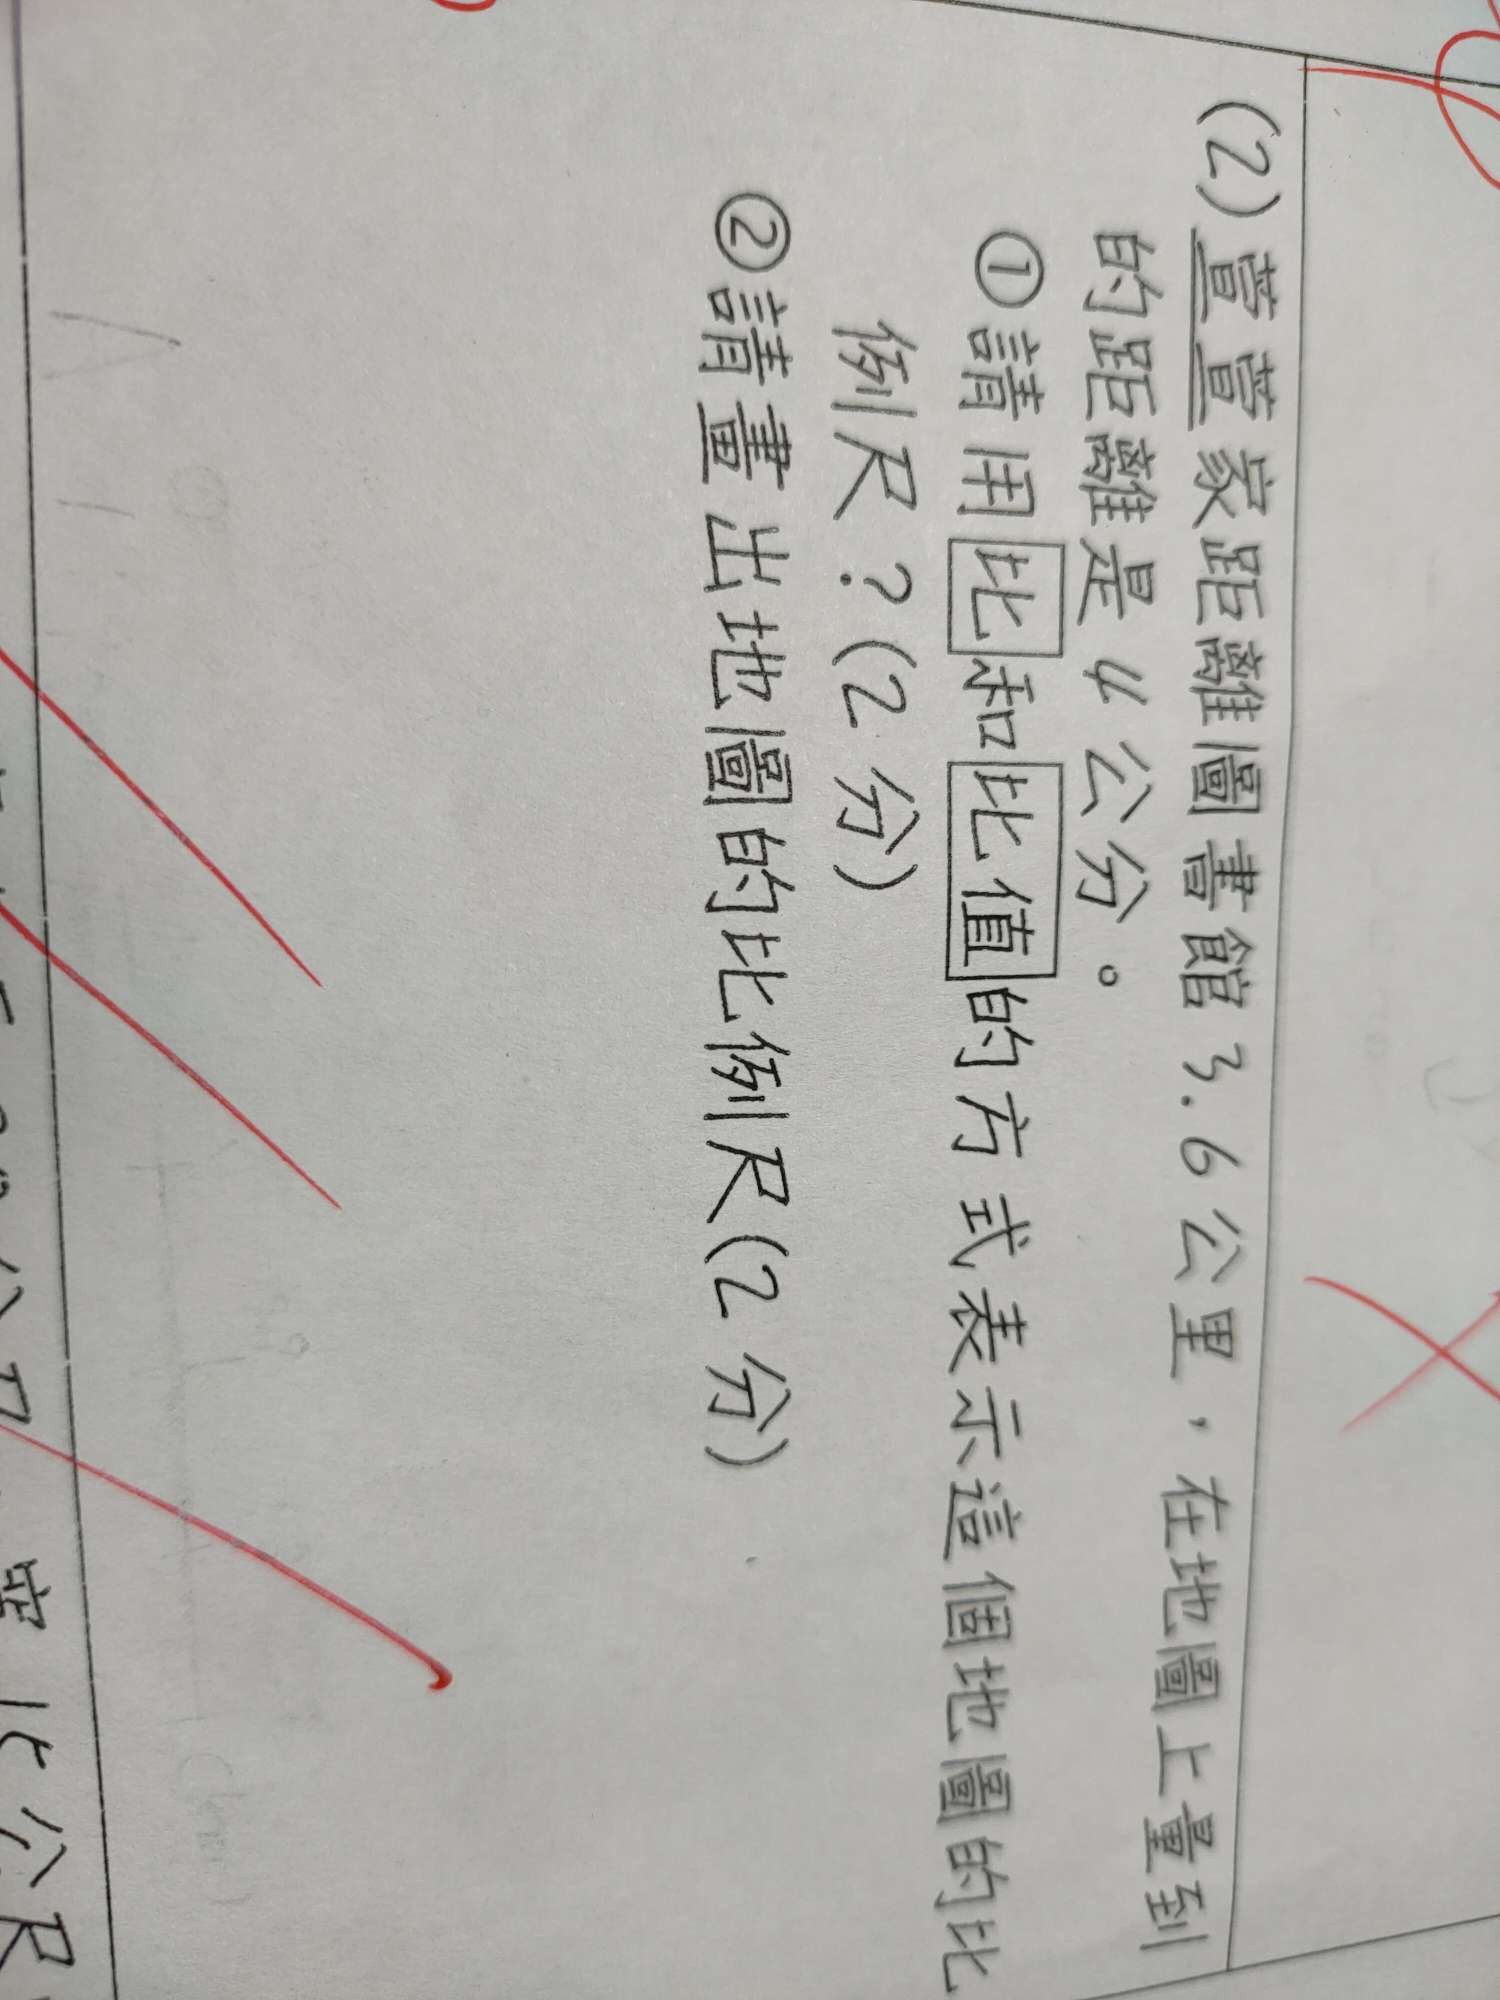 (2)萱萱家距離圖書館3.6公里，在地圖上量到
的距離是4公分。
①請用比和比值的方式表示這個地圖的比
例尺？(2分)
②請畫出地圖的比例尺(2分)